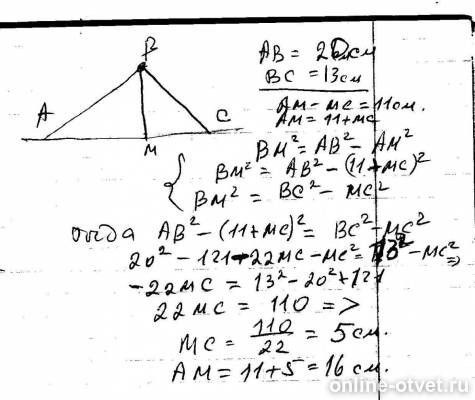 B
A
M
C
AB = 20 см
BC = 13 см
AM - MC = 11 см.
AM = 11 + MC
BM² = AB² - AM²
BM² = AB² - (11 + MC)²
BM² = BC² - MC²
откуда AB² - (11 + MC)² = BC² - MC²
20² - 121 - 22MC - MC² = 13² - MC² =>
-22MC = 13² - 20² + 121
22MC = 110 =>
MC = 110/22 = 5 см.
AM = 11 + 5 = 16 см.
online-otvet.ru